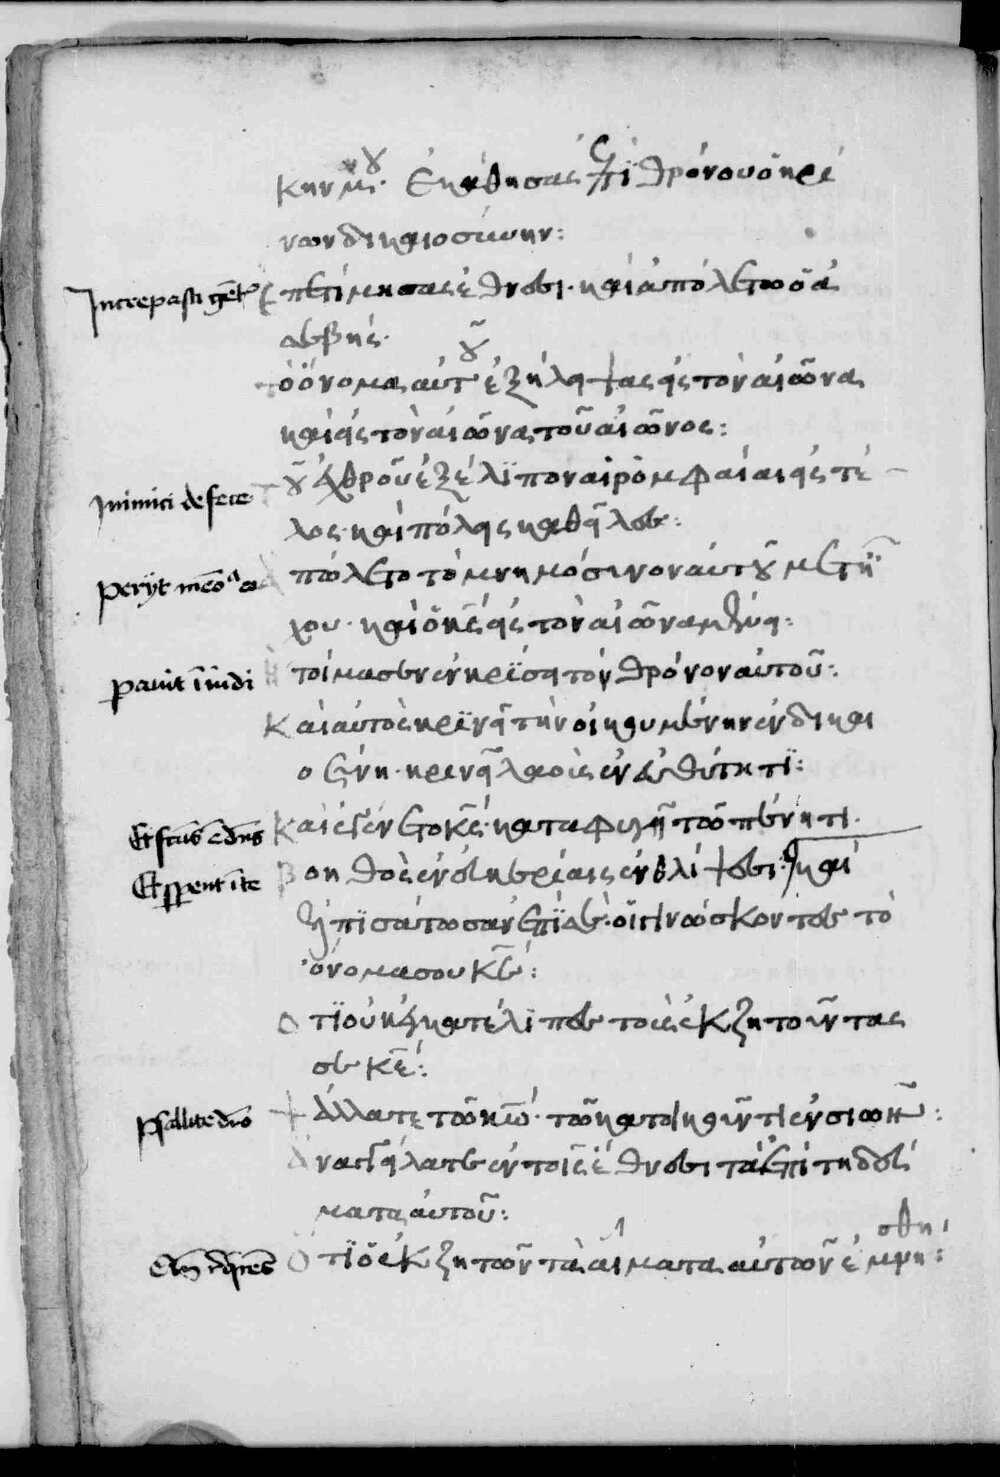 κην μȣ· ἐκάθησας ἐπῒ θρόνου ὁ κρέ
νων δικαιοσύνην:
Increpasti gent ἐπετίμησας ἔθνεσι· καὶ ἀπόλετω ὁ ἀ
σεβής·
τὸ ὄνομα αὐτȣ͂ ἐξήληψας εἰς τὸν αἰῶνα
καὶ εἰς τὸν αἰῶνα τοῦ αἰῶνος:
Inimici defece τȣ͂ ἐχθροῦ ἐξέλϊπον αἱ ρομφαίαι εἰς τέ
λος· καὶ πόλεις καθεῖλες:
Periit meoa ἀπώλετο τὸ μνημόσινον αὐτȣ͂ μετῆ
χου· καὶ ὁ κ̅ς̅ εἰς τὸν αἰῶνα μένει:
Parauit in iudi ἡτοίμασεν ἐν κρϊσει τὸν θρόνον αὐτοῦ:
Καὶ αὐτὸς κρϊνεῖ τὴν οἰκουμένην ἐν δικαι
οσύνη· κρενεῖ λαοὶς ἐν εὐθύτητϊ:
Et factus e dns Καὶ ἐγένετο κ̅ς̅· καταφυγῆ τῶ πένητι·
Et sperent in te βοηθὸς ἐν εὐκερίαις ἐν θλίψεσι· καὶ
ἐλπϊσάτωσαν ἐπῒ σὲ· οἱ γινώσκοντες τὸ
ὄνομα σου κ̅ε̅:
ὅτϊ οὐκ ἐγκατέλϊπες τοὶς ἐκζητοῦντας
σε κ̅ε̅:
Psallite dno ψάλλατε τῶ κ̅ω̅· τῶ κατοικοῦντι ἐν σιών:
ἀναγγείλατε ἐν τοῖς ἔθνεσι τὰ ἐπιτηδεύ
ματα αὐτοῦ:
ὅτϊ ὁ ἐκζητῶν τὰ αἵματα αὐτῶν ἐμνή
σθη: